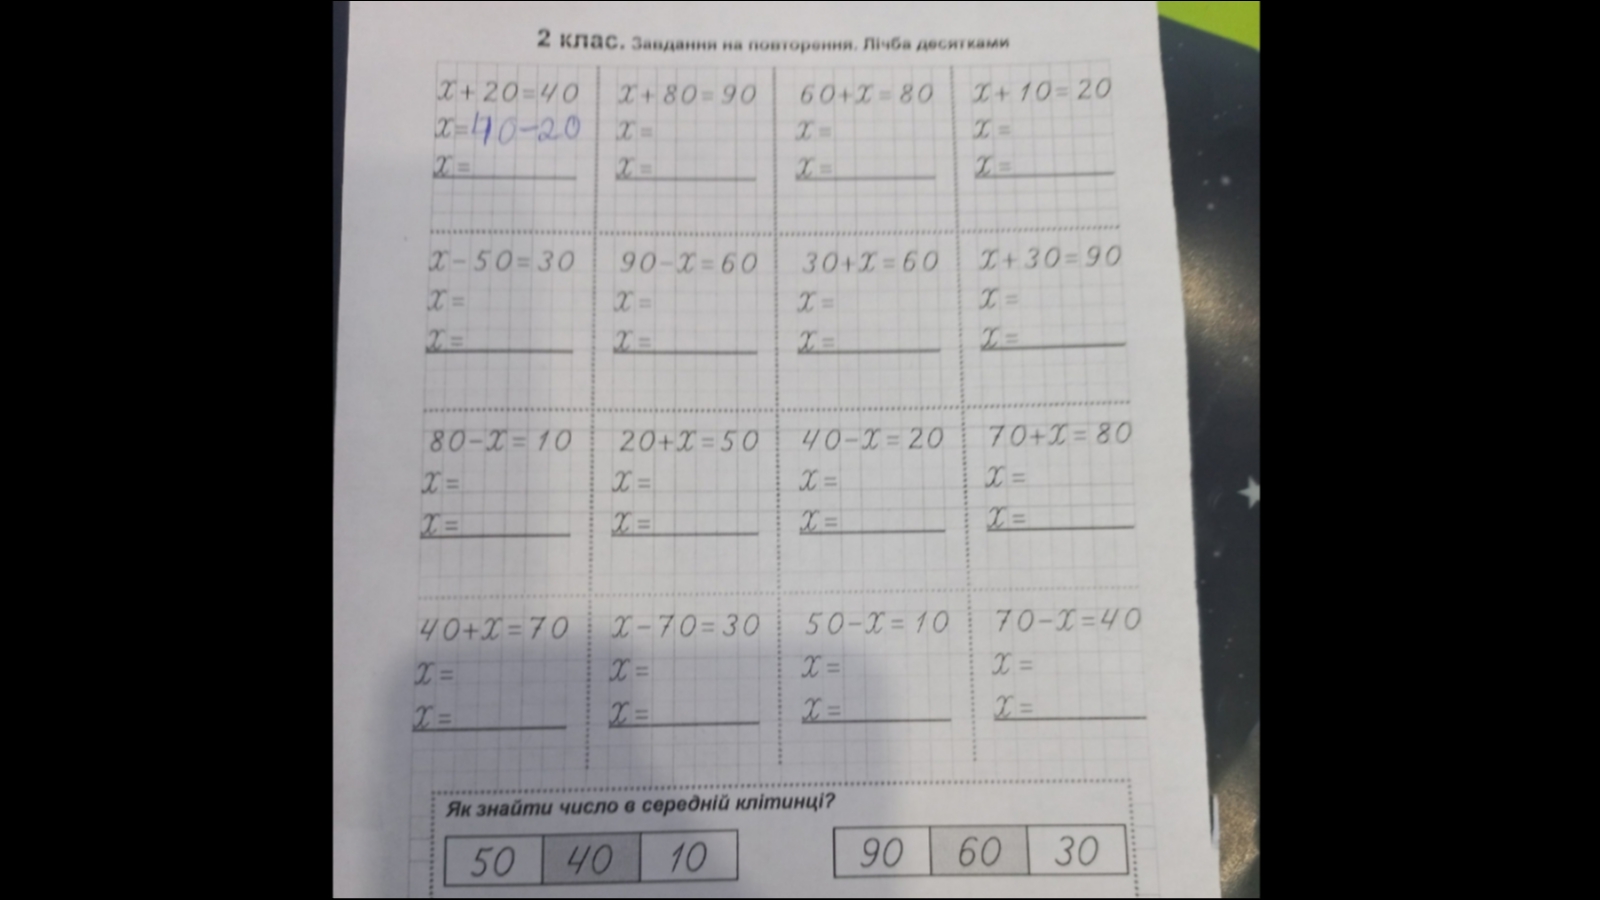 2 клас. Завдання на повторення. Лічба десятками
x+20=40 x+80=90 60+x=80 x+10=20
x=40-20 x= x= x=
x= x= x= x=
x-50=30 90-x=60 30+x=60 x+30=90
x= x= x= x=
x= x= x= x=
80-x=10 20+x=50 40-x=20 70+x=80
x= x= x= x=
x= x= x= x=
40+x=70 x-70=30 50-x=10 70-x=40
x= x= x= x=
x= x= x= x=
Як знайти число в середній клітинці?
50 40 10 90 60 30